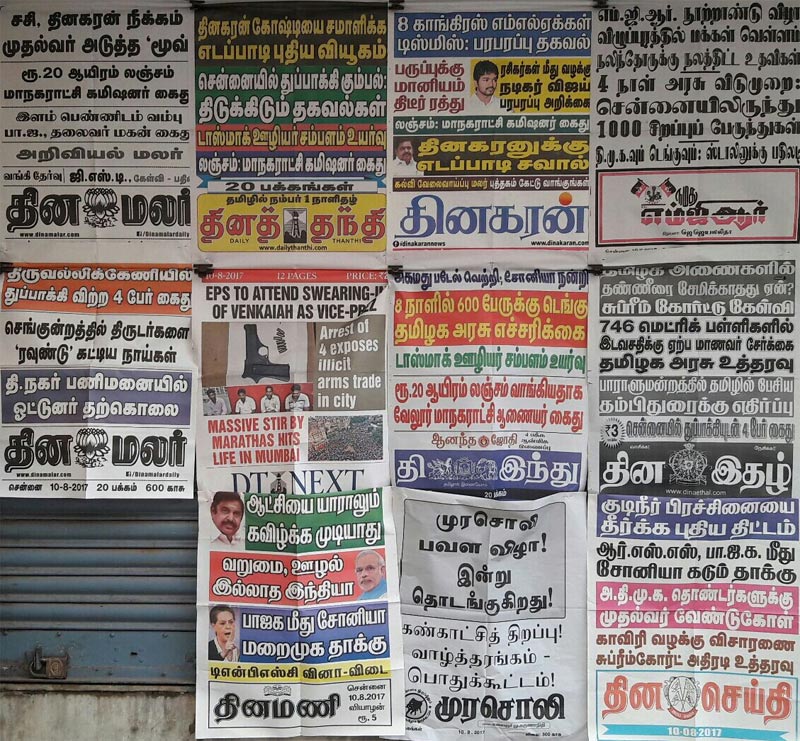 சசி, தினகரன் நீக்கம்
முதல்வர் அடுத்த 'மூவ்'
ரூ.20 ஆயிரம் லஞ்சம்
மாநகராட்சி கமிஷனர் கைது
இளம் பெண்ணிடம் வம்பு
பா.ஜ., தலைவர் மகன் கைது
அறிவியல் மலர்
வங்கி தேர்வு ஜி.எஸ்.டி., கேள்வி - பதில்
தின மலர்
www.dinamalar.com
/Dinamalardaily
தினகரன் கோஷ்டியை சமாளிக்க
எடப்பாடி புதிய வியூகம்
சென்னையில் துப்பாக்கி கும்பல்:
திடுக்கிடும் தகவல்கள்
டாஸ்மாக் ஊழியர் சம்பளம் உயர்வு
லஞ்சம்: மாநகராட்சி கமிஷனர் கைது
20 பக்கங்கள்
தமிழில் நம்பர் 1 நாளிதழ்
தினத் தந்தி
DAILY THANTHI
www.dailythanthi.com
8 காங்கிரஸ் எம்எல்ஏக்கள்
டிஸ்மிஸ்: பரபரப்பு தகவல்
பருப்புக்கு
மானியம்
திடீர் ரத்து
ரசிகர்கள் மீது வழக்கு
நடிகர் விஜய்
பரபரப்பு அறிக்கை
லஞ்சம்: மாநகராட்சி கமிஷனர் கைது
தினகரனுக்கு
எடப்பாடி சவால்
கல்வி வேலைவாய்ப்பு மலர் புத்தகம் கேட்டு வாங்குங்கள்
தினகரன்
dinakarannews
dinakaran.com
எம்.ஜி.ஆர். நூற்றாண்டு விழா
விழுப்புரத்தில் மக்கள் வெள்ளம்
நலிந்தோருக்கு நலத்திட்ட உதவிகள்
4 நாள் அரசு விடுமுறை:
சென்னையிலிருந்து
1000 சிறப்புப் பேருந்துகள்
தி.மு.க.வும் டெங்குவும்: ஸ்டாலினுக்கு பதிலடி
நமது
எம்ஜிஆர்
திருவல்லிக்கேணியில்
துப்பாக்கி விற்ற 4 பேர் கைது
செங்குன்றத்தில் திருடர்களை
'ரவுண்டு' கட்டிய நாய்கள்
தி.நகர் பணிமனையில்
ஓட்டுனர் தற்கொலை
தின மலர்
www.dinamalar.com
/Dinamalardaily
சென்னை 10-8-2017 20 பக்கம் 600 காசு
10-8-2017 12 PAGES PRICE: ₹2
EPS TO ATTEND SWEARING-I
OF VENKAIAH AS VICE-PR
Arrest of
4 exposes
illicit
arms trade
in city
MASSIVE STIR BY
MARATHAS HITS
LIFE IN MUMBAI
DT NEXT
அகமது படேல் வெற்றி, சோனியா நன்றி
8 நாளில் 600 பேருக்கு டெங்கு
தமிழக அரசு எச்சரிக்கை
டாஸ்மாக் ஊழியர் சம்பளம் உயர்வு
ரூ.20 ஆயிரம் லஞ்சம் வாங்கியதாக
வேலூர் மாநகராட்சி ஆணையர் கைது
ஆனந்த ஜோதி
தி இந்து
20 பக்கம்
தமிழக அணைகளில்
தண்ணீரை சேமிக்காதது ஏன்?
சுப்ரீம் கோர்ட்டு கேள்வி
746 மெட்ரிக் பள்ளிகளில்
இடவசதிக்கு ஏற்ப மாணவர் சேர்க்கை
தமிழக அரசு உத்தரவு
பாராளுமன்றத்தில் தமிழில் பேசிய
தம்பிதுரைக்கு எதிர்ப்பு
₹3
சென்னையில் துப்பாக்கியுடன் 4 பேர் கைது
தின இதழ்
www.dinaethal.com
ஆட்சியை யாராலும்
கவிழ்க்க முடியாது
வறுமை, ஊழல்
இல்லாத இந்தியா
பாஜக மீது சோனியா
மறைமுக தாக்கு
டிஎன்பிஎஸ்சி வினா-விடை
தினமணி
சென்னை
10.8.2017
வியாழன்
ரூ. 5
முரசொலி
பவள விழா!
இன்று
தொடங்குகிறது!
கண்காட்சித் திறப்பு!
வாழ்த்தரங்கம் -
பொதுக்கூட்டம்!
முரசொலி
குடிநீர் பிரச்சினையை
தீர்க்க புதிய திட்டம்
ஆர்.எஸ்.எஸ், பா.ஜ.க. மீது
சோனியா கடும் தாக்கு
அ.தி.மு.க. தொண்டர்களுக்கு
முதல்வர் வேண்டுகோள்
காவிரி வழக்கு விசாரணை
சுப்ரீம்கோர்ட் அதிரடி உத்தரவு
தின செய்தி
10-08-2017